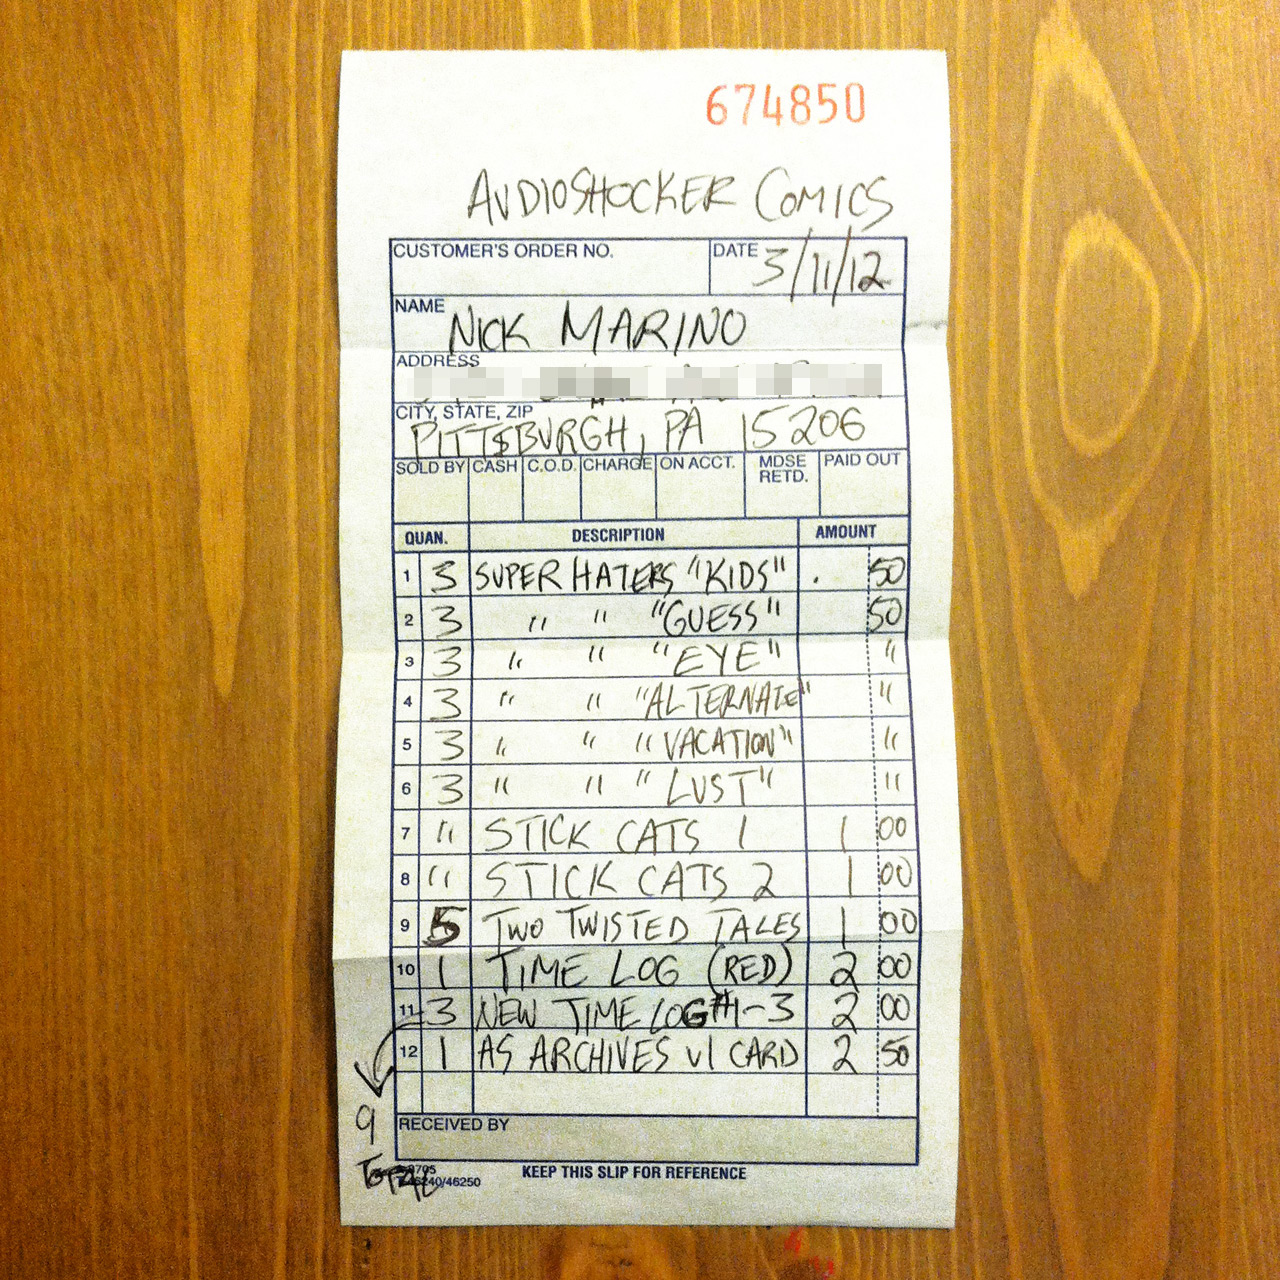 674850
AUDIOSHOCKER COMICS
CUSTOMER'S ORDER NO. DATE 3/11/12
NAME NICK MARINO
ADDRESS
CITY, STATE, ZIP PITTSBURGH, PA 15206
SOLD BY CASH C.O.D. CHARGE ON ACCT. MDSE RETD. PAID OUT
QUAN. DESCRIPTION AMOUNT
1 3 SUPER HATERS "KIDS" . 50
2 3 " " "GUESS" 50
3 3 " " "EYE" "
4 3 " " "ALTERNATE" "
5 3 " " "VACATION" "
6 3 " " "LUST" "
7 " STICK CATS 1 1 00
8 " STICK CATS 2 1 00
9 5 TWO TWISTED TALES 1 00
10 1 TIME LOG (RED) 2 00
11 3 NEW TIME LOG #1-3 2 00
12 1 AS ARCHIVES V1 CARD 2 50
9
TOTAL
RECEIVED BY
46240/46250 KEEP THIS SLIP FOR REFERENCE